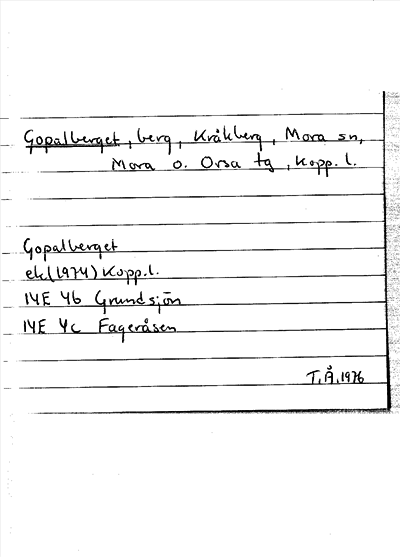 Gopalberget, berg, Kråkberg, Mora sn,
Mora o. Orsa tg, Kopp. l.
Gopalberget
ek(1974) Kopp.l.
14E 4b Grundsjön
14E 4c Fageråsen
T.Å. 1976